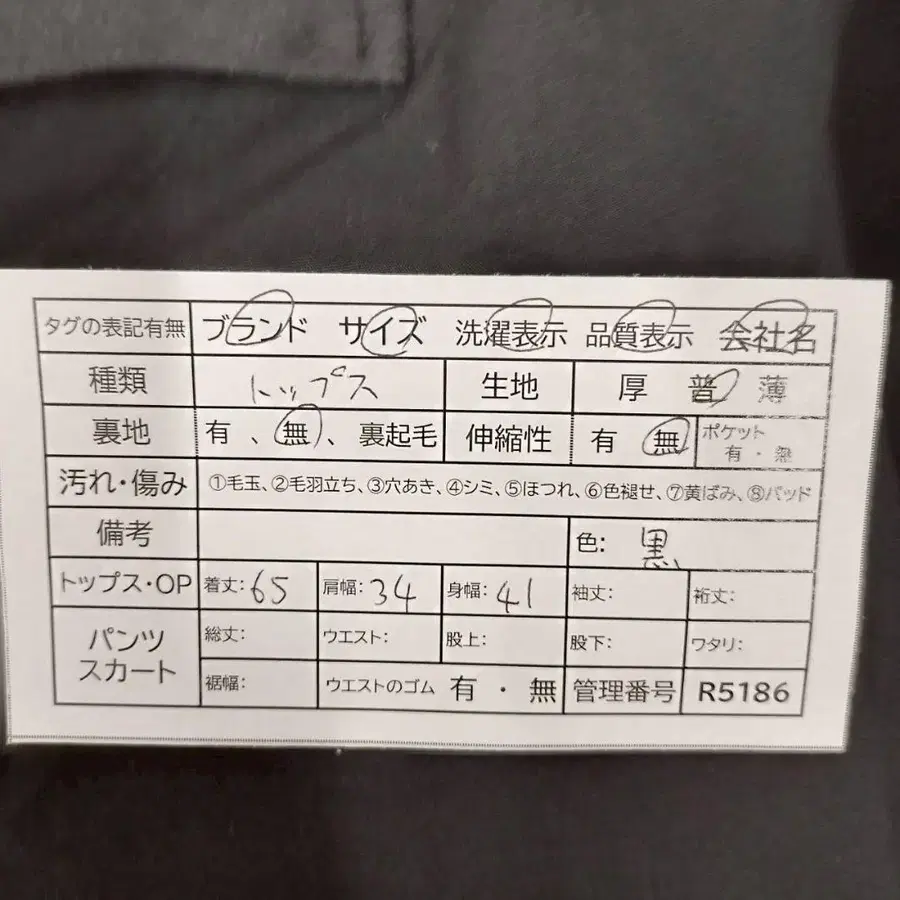 タグの表記有無 ブランド サイズ 洗濯表示 品質表示 会社名
種類 トップス 生地 厚 普 薄
裏地 有、無、裏起毛 伸縮性 有 無 ポケット 有・無
汚れ・傷み ①毛玉、②毛羽立ち、③穴あき、④シミ、⑤ほつれ、⑥色褪せ、⑦黄ばみ、⑧パッド
備考 色: 黒
トップス・OP 着丈:65 肩幅:34 身幅:41 袖丈: 裄丈:
パンツ スカート 総丈: ウエスト: 股上: 股下: ワタリ:
裾幅: ウエストのゴム 有・無 管理番号 R5186